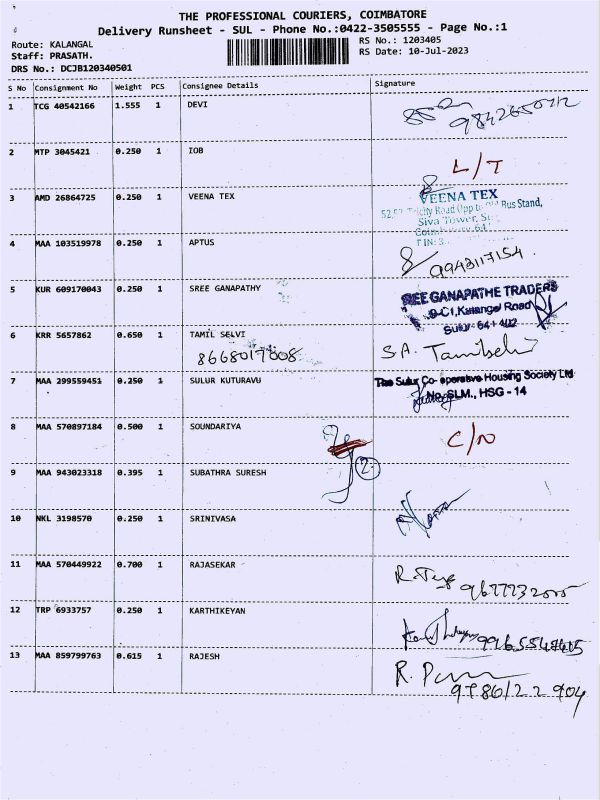 THE PROFESSIONAL COURIERS, COIMBATORE
Delivery Runsheet - SUL - Phone No.:0422-3505555 - Page No.:1
Route: KALANGAL
RS No.: 1203405
Staff: PRASATH.
RS Date: 10-Jul-2023
DRS No.: DCJB120340501
S No Consignment No Weight PCS Consignee Details Signature
1 TCG 40542166 1.555 1 DEVI
2 MTP 3045421 0.250 1 IOB L/T
3 AMD 26864725 0.250 1 VEENA TEX
VEENA TEX
Road Opp Bus Stand,
Siva Tower,
4 MAA 103519978 0.250 1 APTUS 9943117154.
5 KUR 609170043 0.250 1 SREE GANAPATHY
SREE GANAPATHE TRADERS
9-C1, Kalangal Road
Sulur - 641 402
6 KRR 5657862 0.650 1 TAMIL SELVI
8668017008
S.A. Tamilselvi
7 MAA 299559451 0.250 1 SULUR KUTURAVU
The Sulur Co-operative Housing Society Ltd
No. SLM., HSG - 14
8 MAA 570897184 0.500 1 SOUNDARIYA C/N
2
9 MAA 943023318 0.395 1 SUBATHRA SURESH
10 NKL 3198570 0.250 1 SRINIVASA
11 MAA 570449922 0.700 1 RAJASEKAR
12 TRP 6933757 0.250 1 KARTHIKEYAN
13 MAA 859799763 0.615 1 RAJESH